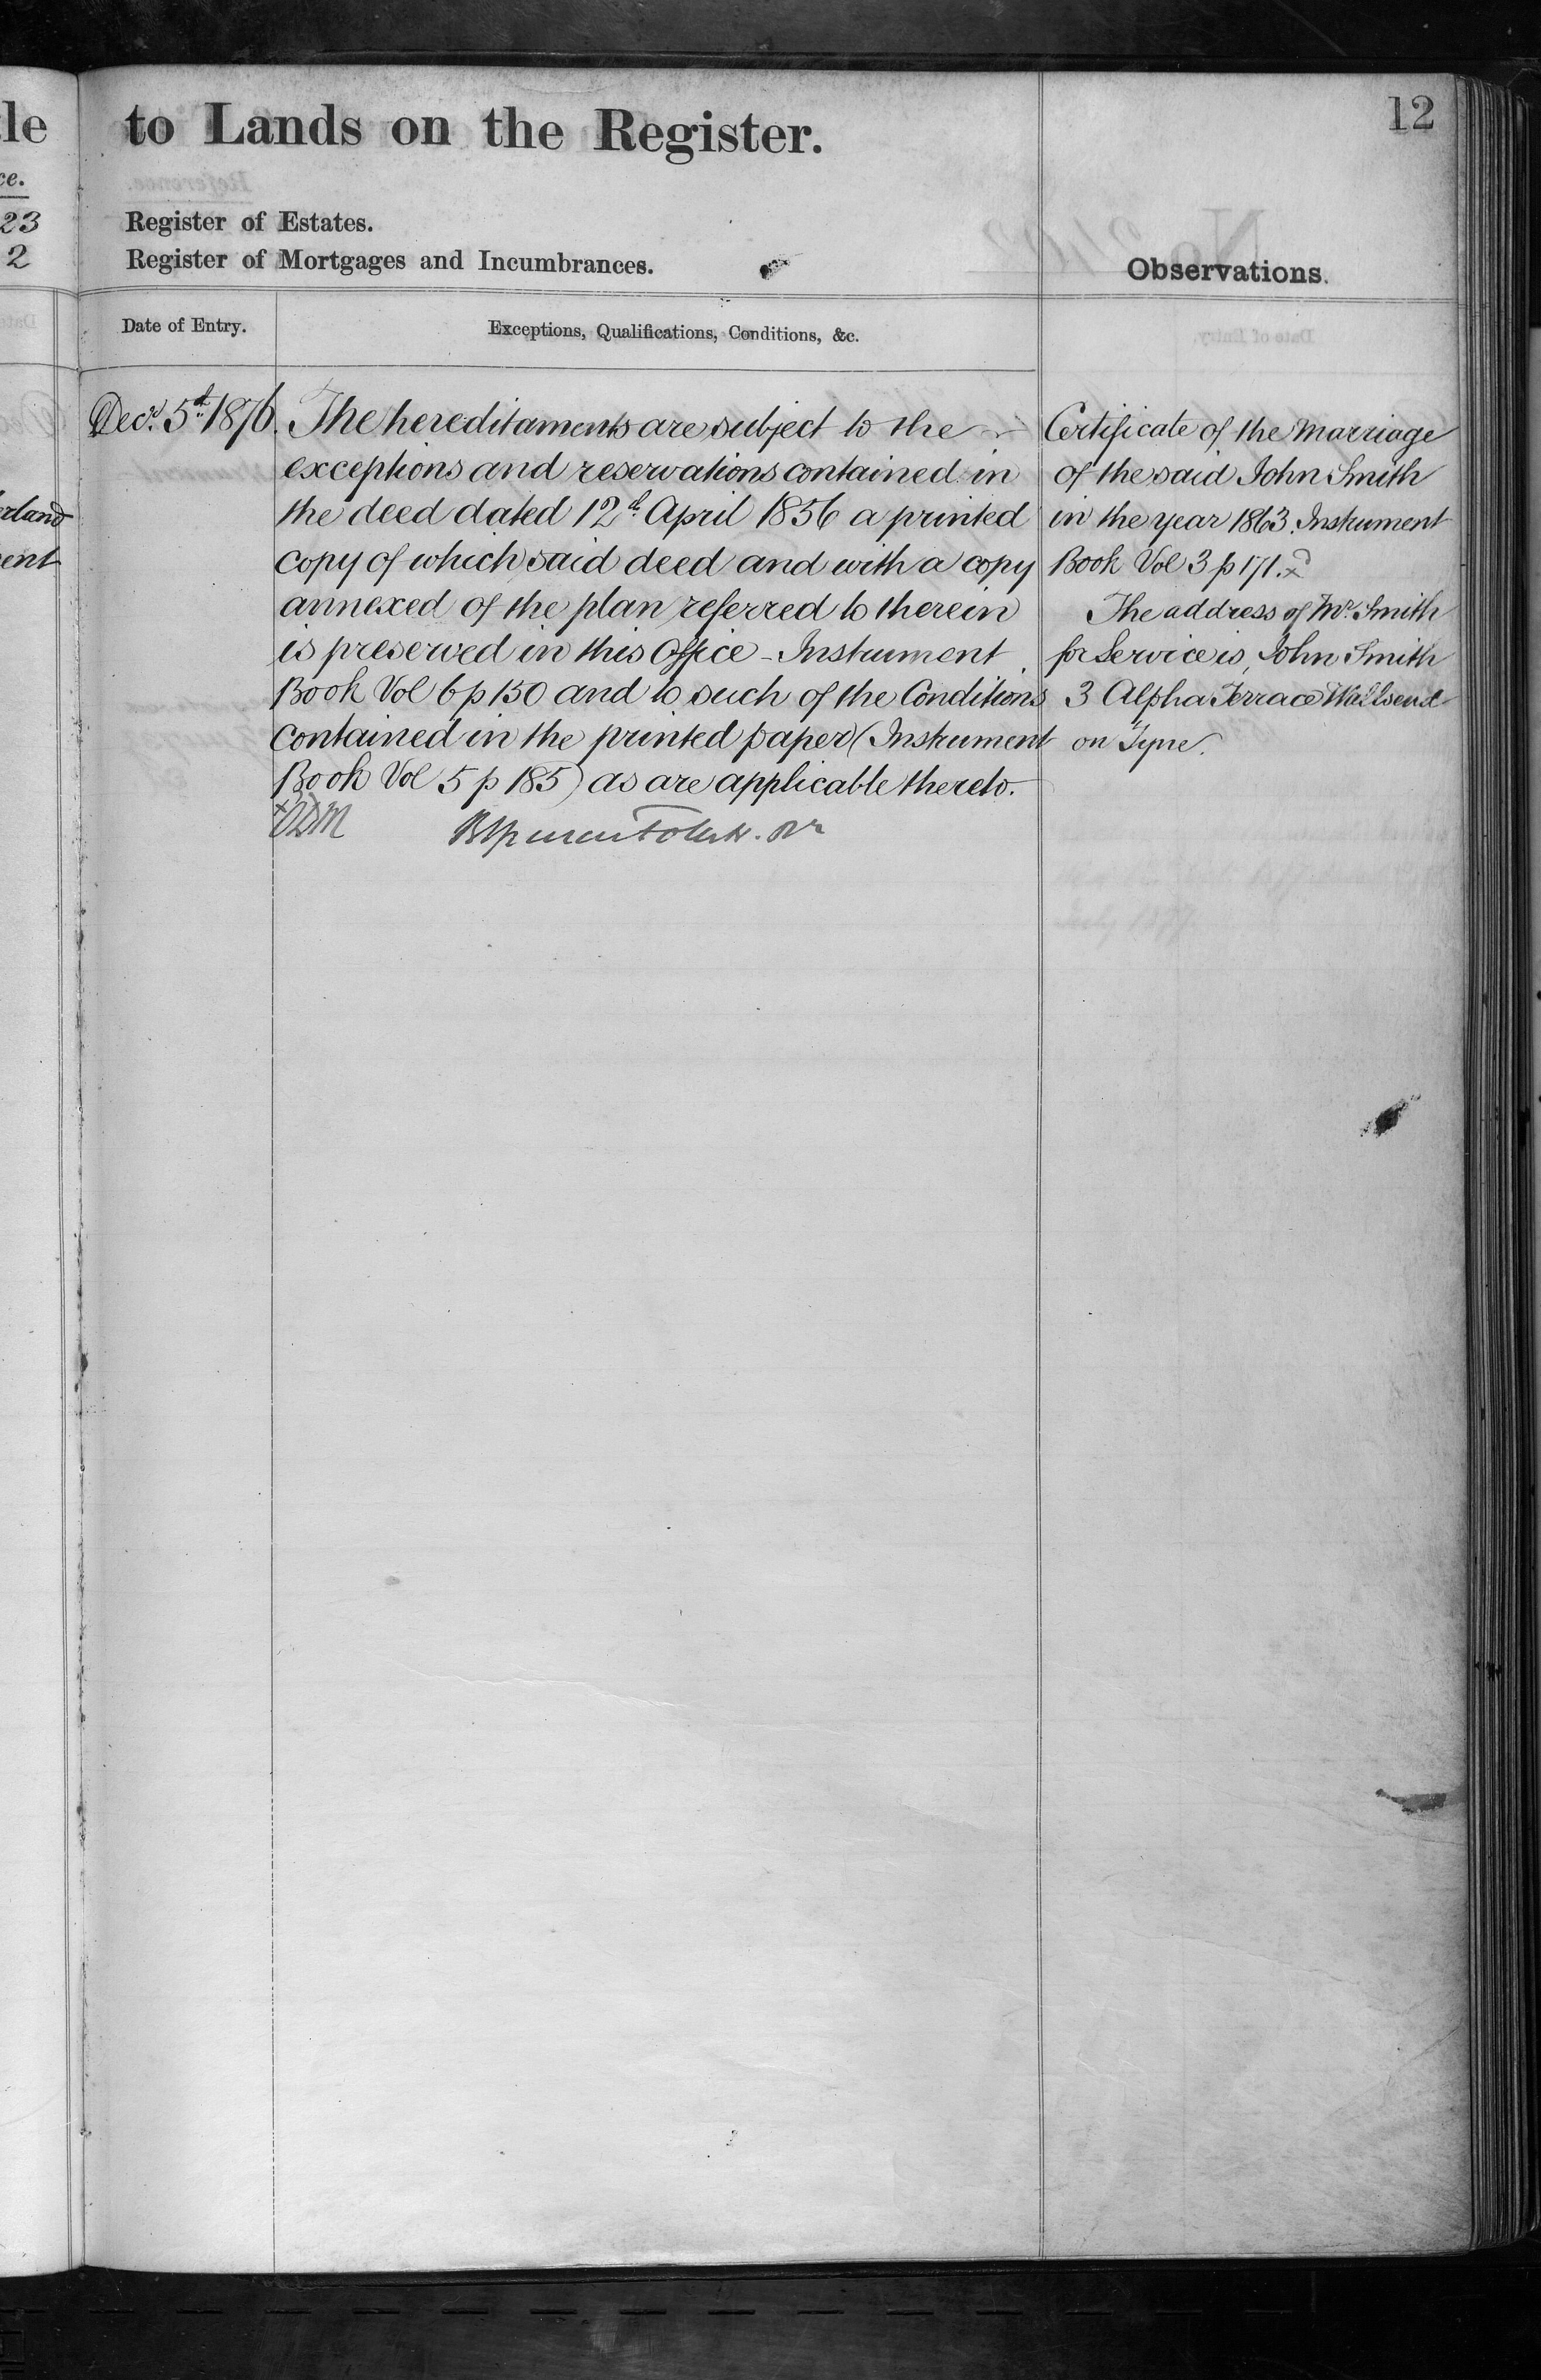 le
ce.
23
2
erland
ent
to Lands on the Register.
12
Register of Estates.
Register of Mortgages and Incumbrances.
Observations.
Date of Entry.
Exceptions, Qualifications, Conditions, &c.
Decr. 5th 1876.
The hereditaments are subject to the
exceptions and reservations contained in
the deed dated 12th April 1856 a printed
copy of which said deed and with a copy
annexed of the plan referred to therein
is preserved in this Office - Instrument
Book Vol 6 p 150 and to such of the Conditions
contained in the printed paper (Instrument
Book Vol 5 p 185) as are applicable thereto.
Certificate of the Marriage
of the said John Smith
in the year 1863. Instrument
Book Vol 3 p 171.
The address of Mr. Smith
for Service is, John Smith
3 Alpha Terrace Wallsend
on Tyne.